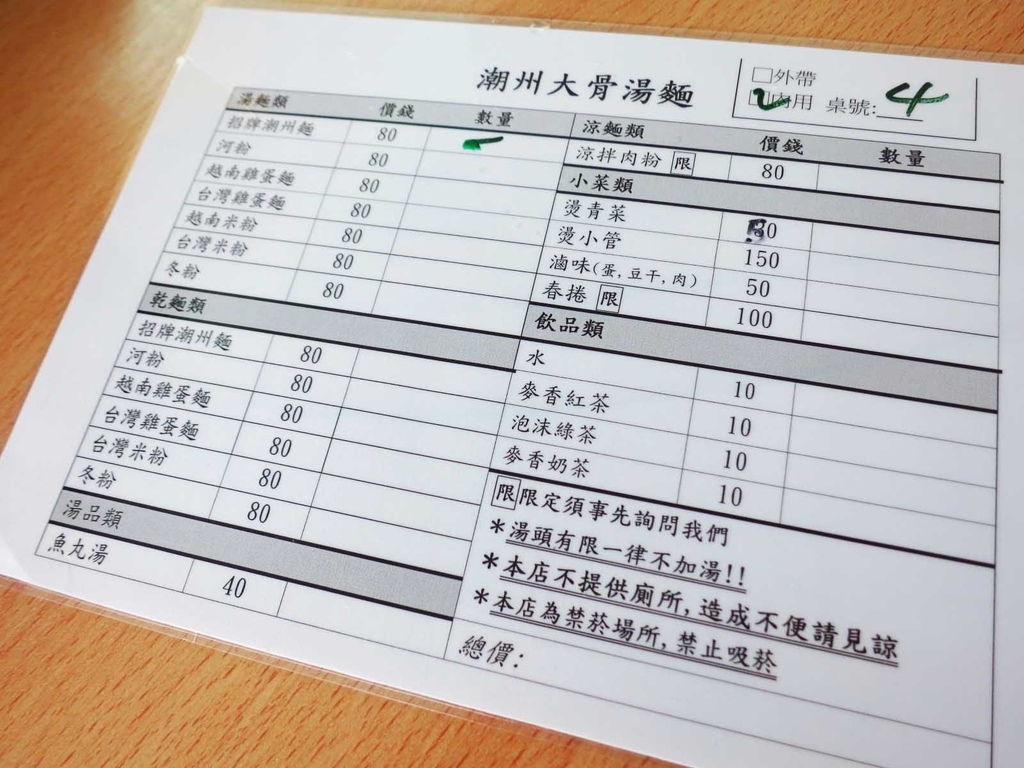 潮州大骨湯麵
□外帶
□內用 桌號:4
湯麵類 價錢 數量
招牌潮州麵 80
河粉 80
越南雞蛋麵 80
台灣雞蛋麵 80
越南米粉 80
台灣米粉 80
冬粉 80
乾麵類
招牌潮州麵 80
河粉 80
越南雞蛋麵 80
台灣雞蛋麵 80
台灣米粉 80
冬粉 80
湯品類
魚丸湯 40
涼麵類 價錢 數量
涼拌肉粉 限 80
小菜類
燙青菜
燙小管 150
滷味(蛋,豆干,肉) 50
春捲 限 100
飲品類
水 10
麥香紅茶 10
泡沫綠茶 10
麥香奶茶 10
限限定須事先詢問我們
*湯頭有限一律不加湯!!
*本店不提供廁所,造成不便請見諒
*本店為禁菸場所,禁止吸菸
總價: